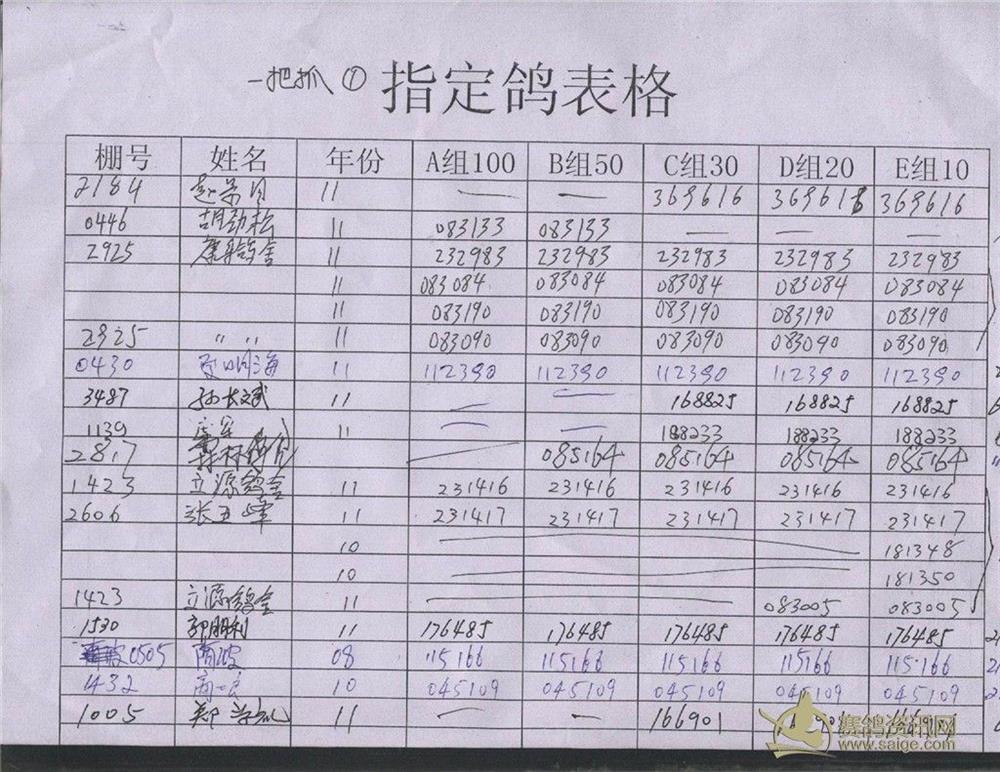 一把抓 ① 指定鸽表格
棚号 姓名 年份 A组100 B组50 C组30 D组20 E组10
2184 11 — — 369616 369616 369616
0446 胡劲松 11 083133 083133 — — —
2925 11 232983 232983 232983 232983 232983
11 083084 083084 083084 083084 083084
11 083190 083190 083190 083190 083190
2925 " " 11 083090 083090 083090 083090 083090
0430 11 112390 112390 112390 112390 112390
3487 孙长斌 11 — — 168825 168825 168825
1139 11 — — 188233 188233 188233
2817 — 085164 085164 085164 085164
1423 立源鸽舍 11 231416 231416 231416 231416 231416
2606 11 231417 231417 231417 231417 231417
10 181348
10 181350
1423 立源鸽舍 11 083005 083005
1530 郭朋利 11 176485 176485 176485 176485 176485
0505 08 115166 115166 115166 115166 115166
1432 10 045109 045109 045109 045109 045109
1005 11 — — 166901
赛鸽资讯网
www.saige.com